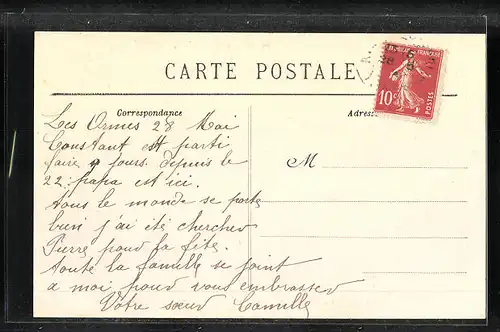 CARTE POSTALE
RÉPUBLIQUE FRANÇAISE
10c
POSTES
Correspondance
Adresse
M
Les Ormes 28 Mai
Constant est parti
faire 9 jours. depuis le
22. papa est ici.
tous le monde se porte
bien j'ai été chercher
Pierre pour la fête.
toute la famille se joint
a moi pour vous embrasser
Votre sœur Camille